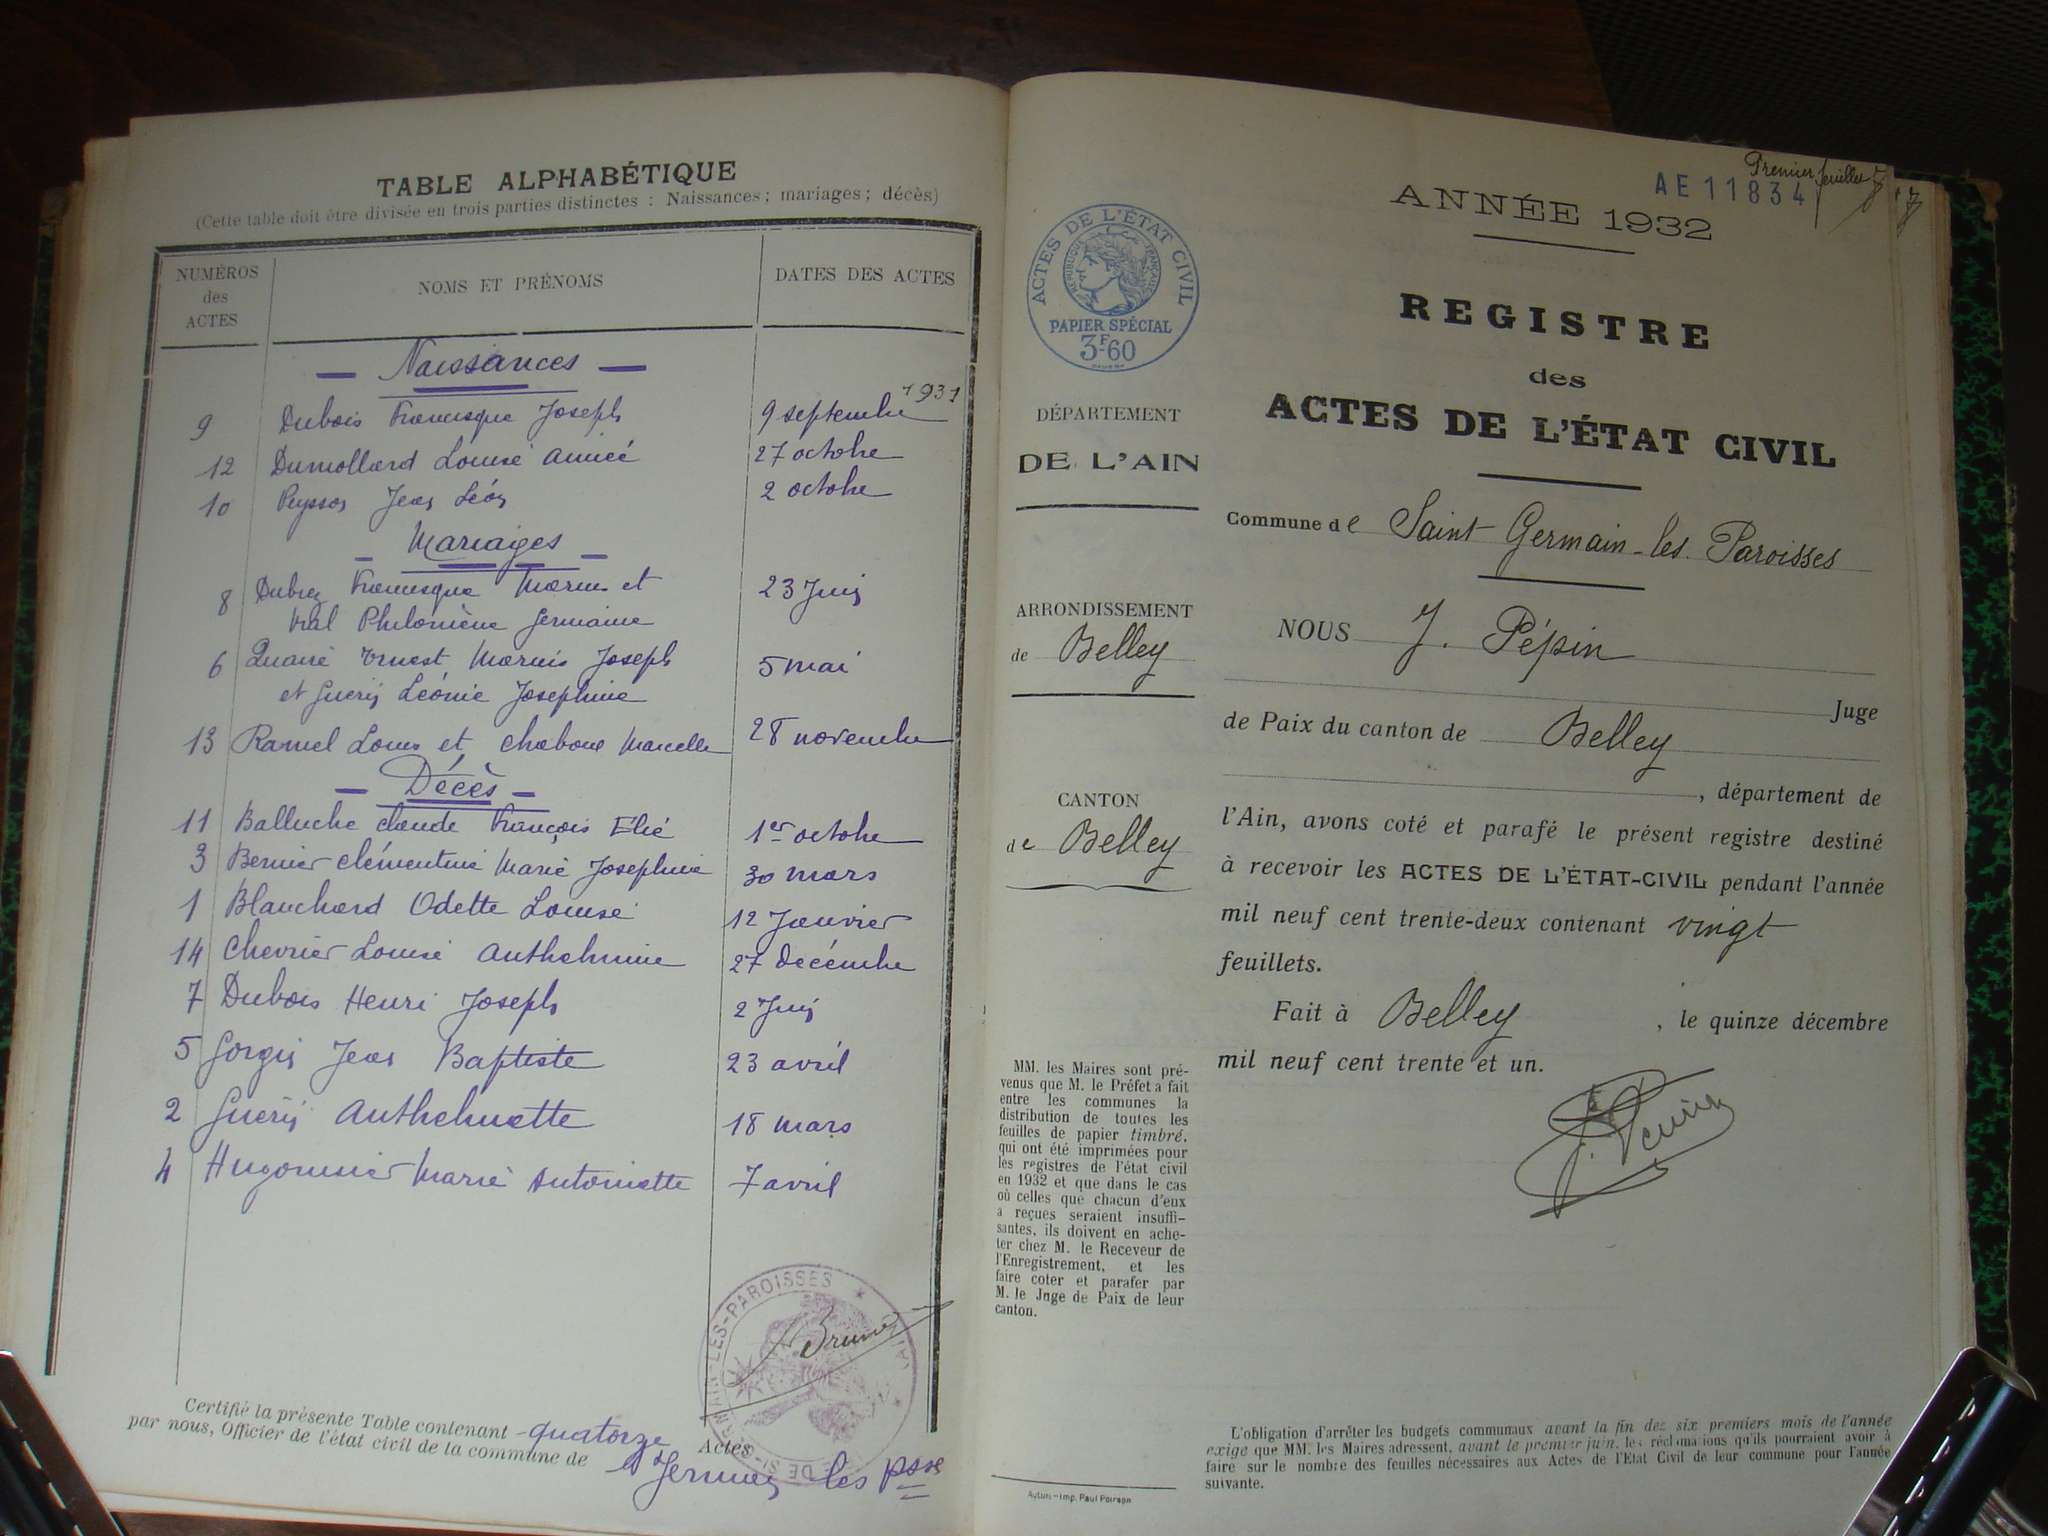 TABLE ALPHABÉTIQUE
(Cette table doit être divisée en trois parties distinctes : Naissances ; mariages ; décès)
NUMÉROS des ACTES
NOMS ET PRÉNOMS
DATES DES ACTES
Naissances
1931
9 Dubois Francisque Joseph 9 septembre
12 Dumollard Louise Aimée 27 octobre
10 Peysson Jean Léon 2 octobre
Mariages
8 Francisque Marius et 23 Juin
Vial Philomène Germaine
6 Ernest Marius Joseph 5 mai
et Guérin Léonie Josephine
13 Ramel Louis et Chaboux Marcelle 28 novembre
Décès
11 Balluche Claude François Elie 1er octobre
3 Bernier Clémentine Marie Josephine 30 mars
1 Blanchard Odette Louise 12 Janvier
14 Chevrier Louise Anthelmine 27 Décembre
7 Dubois Henri Joseph 2 Juin
5 Gorgin Jean Baptiste 23 avril
2 Guérin Anthelmette 18 mars
4 Hugonnier Marie Antoinette 7 avril
Certifié la présente Table contenant quatorze Actes
par nous, Officier de l'état civil de la commune de St Germain les psses
Premier feuillet
AE 11834
ANNÉE 1932
ACTES DE L'ÉTAT CIVIL
RÉPUBLIQUE FRANÇAISE
PAPIER SPÉCIAL
3F60
REGISTRE
des
ACTES DE L'ÉTAT CIVIL
DÉPARTEMENT
DE L'AIN
Commune de Saint Germain-les-Paroisses
ARRONDISSEMENT
de Belley
NOUS J. Pépin
Juge
de Paix du canton de Belley
, département de
CANTON
de Belley
l'Ain, avons coté et parafé le présent registre destiné
à recevoir les ACTES DE L'ÉTAT-CIVIL pendant l'année
mil neuf cent trente-deux contenant vingt
feuillets.
Fait à Belley, le quinze décembre
mil neuf cent trente et un.
MM. les Maires sont pré-
venus que M. le Préfet a fait
entre les communes la
distribution de toutes les
feuilles de papier timbré,
qui ont été imprimées pour
les registres de l'état civil
en 1932 et que dans le cas
où celles que chacun d'eux
a reçues seraient insuffi-
santes, ils doivent en ache-
ter chez M. le Receveur de
l'Enregistrement, et les
faire coter et parafer par
M. le Juge de Paix de leur
canton.
L'obligation d'arrêter les budgets communaux avant la fin des six premiers mois de l'année
exige que MM. les Maires adressent, avant le premier juin, les réclamations qu'ils pourraient avoir à
faire sur le nombre des feuilles nécessaires aux Actes de l'Etat Civil de leur commune pour l'année
suivante.
Imp. Paul Poirson